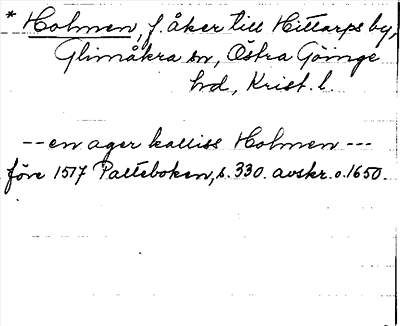 * Holmen, f. åker till Hittarps by,
Glimåkra sn, Östra Göinge
hd, Krist. l.
-- en ager kalliss Holmen ---
före 1517 Palteboken, s. 330. avskr. o. 1650.